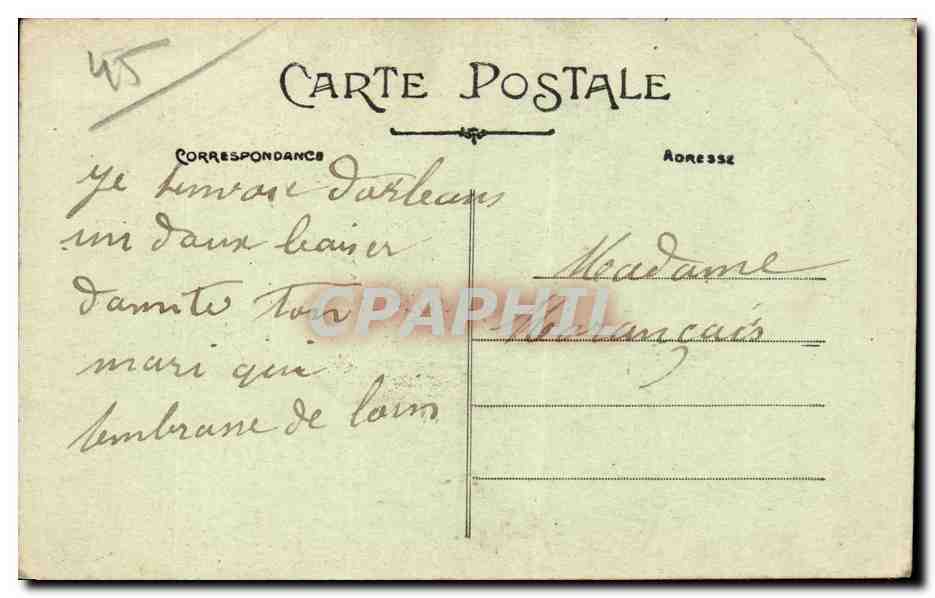 45
CARTE POSTALE
CORRESPONDANCE
ADRESSE
Je tenvoie dorleans
un doux baiser
damite ton
mari qui
tembrasse de loin
Madame
Marançais
CPAPHIL